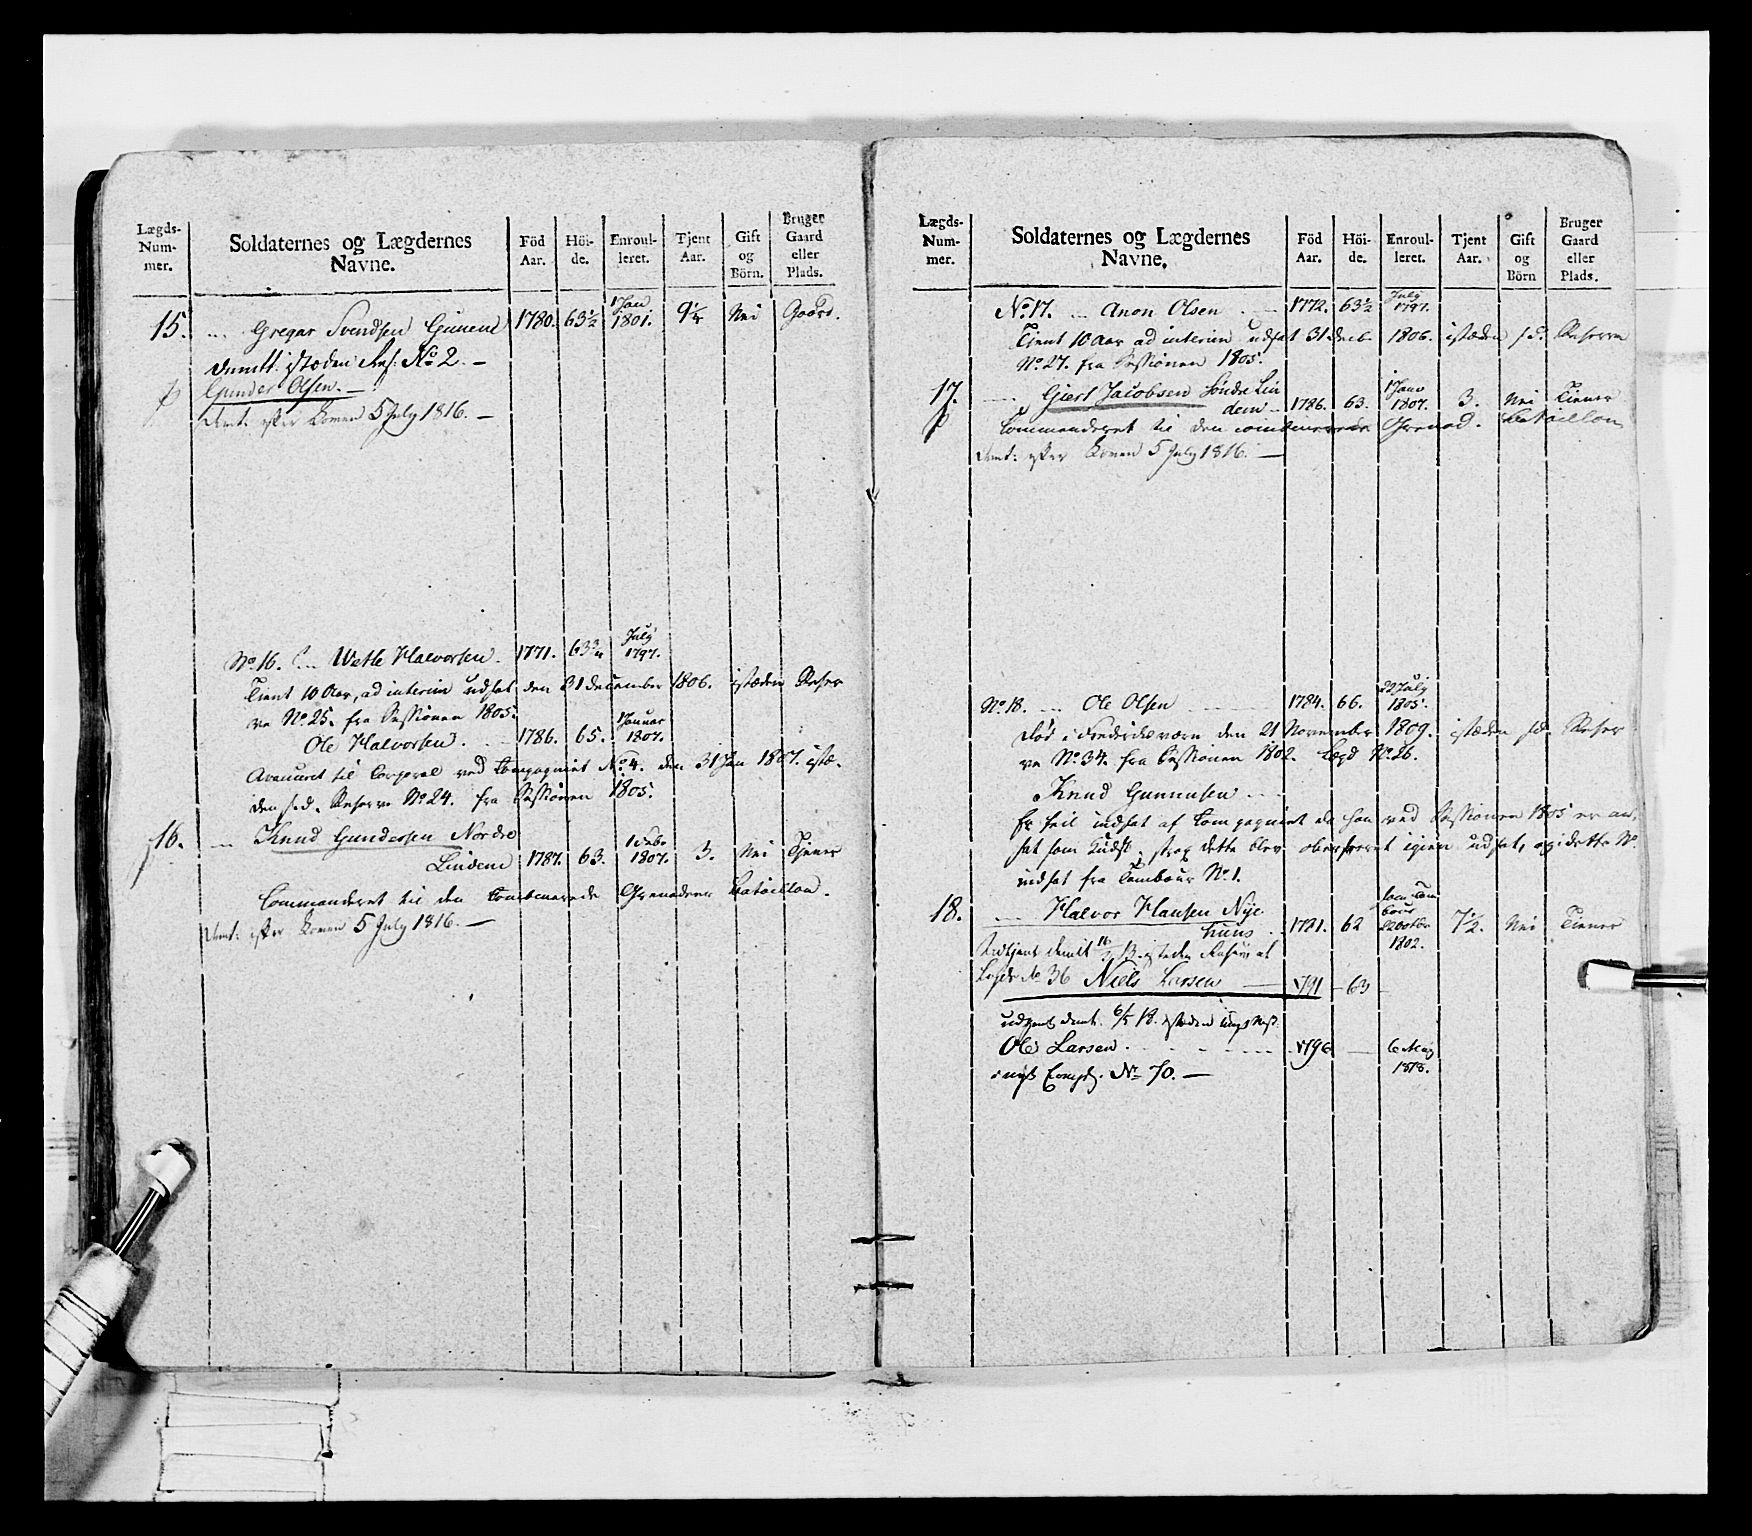 Lægds-
Num-
mer.
Soldaternes og Lægdernes
Navne.
Föd
Aar.
Höi-
de.
Enroul-
leret.
Tjent
Aar.
Gift
og
Börn.
Bruger
Gaard
eller
Plads.
15. Gregar Svendsen Gunene 1780. 63½ 1 Jan 1801. 9¼ Nei Gaard.
Demitt: istæden Res: No 2. —
Gunder Olsen. —
Demt: efter Loven 5 July 1816. —
No. 16. Wetle Halvorsen. 1771. 63¾ July 1797.
Tient 10 Aar, ad interim udsat den 31 December 1806. istæden Reser
ve No. 25. fra Sessionen 1805.
Ole Halvorsen. 1786. 65. 1 Januar 1807.
Avanceret til Corporal ved Compagniet No. 4. den 31 Jan 1807. istæ-
den s.d. Reserve No. 24. fra Sessionen 1805.
16. Knud Gundersen Nordre
Lindem 1787. 63. 1 Febr 1807. 3. Nei Tjener
Commanderet til den Combinerede Grenadeer Batoillon.
Demt: efter Loven 5 July 1816. —
Lægds-
Num-
mer.
Soldaternes og Lægdernes
Navne.
Föd
Aar.
Höi-
de.
Enroul-
leret.
Tjent
Aar.
Gift
og
Börn
Bruger
Gaard
eller
Plads.
No. 17. Anon Olsen 1772. 63½ July 1797.
Tient 10 Aar ad interim udsat 31 Decb. 1806. istæden s.d. Reserve
No. 27. fra Sessionen 1805.
17. Giert Jacobsen Söndre Lin
dem 1786. 63. 1 Janv 1807. 3. Nei Tiener
Commanderet til den combinerede Grenad. Batoillon
Demt: efter Loven 5 July 1816. —
No. 18. Ole Olsen 1784. 66. 22 July 1805.
Död i Fredriksværn den 21 November 1809. istæden s.d. Reser
ve No. 34. fra Sessionen 1802. Lægd No. 26.
Knud Gunnusen
Er feil indsat af Compagniet da han ved Sessionen 1805 er an-
sat som Kudsk, strax dette blev igien udsat, og i dette No.
indsat fra Tambour No. 1.
18. Halvor Hansen Nye
huus 1781. 62 22 Octbr 1802. 7½. Nei Tiener
Udtjent demitt istæden Reserv at
Lægd No 36 Niels Larsen — 1791 — 63 —
udtjent demt. 6/5 18. istæden
Ole Larsen 1796 — 6 May 1818.
Comp. No 70. —